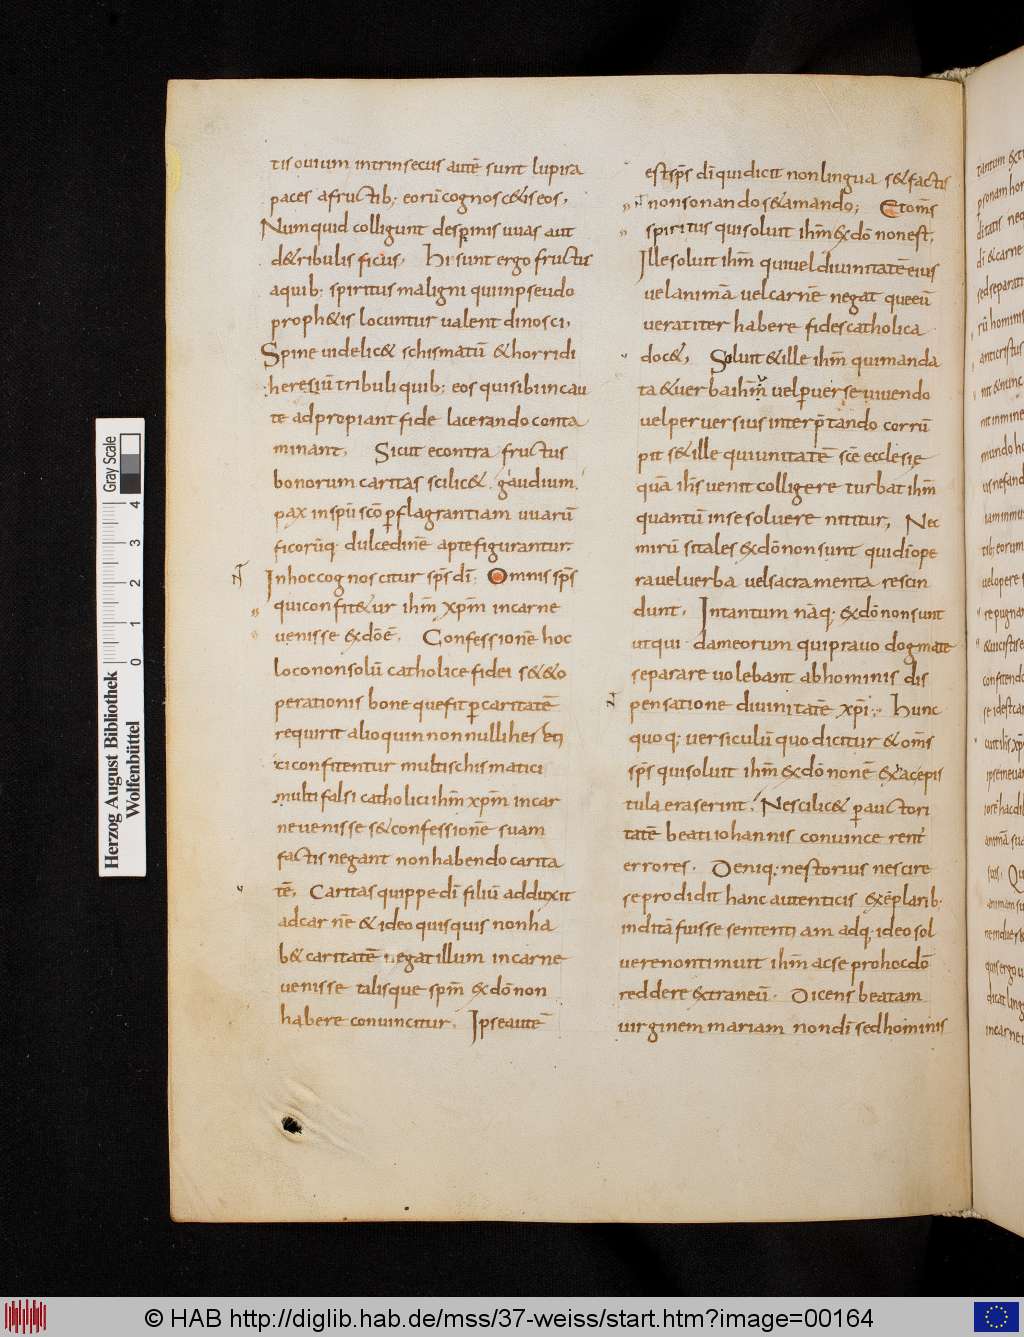 tis ovium intrinsecus autē sunt lupi ra
paces a fructib; eorū cognoscetis eos.
Numquid colligunt de spinis uuas aut
de tribulis ficus. Hi sunt ergo fructus
a quib; spiritus maligni qui in pseudo
proph&is locuntur ualent dinosci.
Spine uidelic& schismatū & horridi
heresiū tribuli quib; eos qui sibi incau
te adpropiant fide lacerando conta
minant. Sicut econtra fructus
bonorum caritas scilic& gaudium
pax in spū scō p flagrantiam uuarū
ficorūq; dulcedinē apte figurantur.
In hoc cognoscitur sp̄s dī; Omnis sp̄s
qui confit&ur ihm̄ xp̄m in carne
uenisse ex dō ē. Confessionē hoc
loco non solū catholice fidei s& & o
perationis bone que fit p caritatē
requirit alioquin nonnulli her&i
ci confitentur multi schismatici
multi falsi catholici ihm̄ xp̄m in car
ne uenisse s& confessionē suam
factis negant non habendo carita
tē. Caritas quippe dī filiū adduxit
ad carnē & ideo quisquis non ha
b& caritatē negat illum in carne
uenisse talisque sp̄m ex dō non
habere conuincitur. Ipse autē
est sp̄s dī qui dicit non lingua s& factis
non sonando s& amando; Et om̄s
spiritus qui soluit ihm̄ ex dō non est.
Ille soluit ihm̄ qui uel diuinitatē eius
uel animā uel carnē negat que eū
ueratiter habere fides catholica
doc&. Soluit & ille ihm̄ qui manda
ta & uerba ihm̄ uel puerse uiuendo
uel peruersius interp̄tando corrū
pit s& ille qui unitatē scē ecclesię
quā ih̄s uenit colligere turbat ihm̄
quantū in se soluere nititur. Nec
mirū si tales ex dō non sunt qui dī ope
ra uel uerba uel sacramenta rescin
dunt. Intantum nāq; ex dō non sunt
ut qui dameorum qui prauo dogmate
separare uolebant ab hominis dis
pensatione diuinitatē xp̄i; Hunc
quoq; uersiculū quo dicitur & om̄s
sp̄s qui soluit ihm̄ ex dō non ē ex aepis
tula eraserint. Ne scilic& p auctori
tatē beati iohannis conuincerent
errores. Deniq; nestorius nescire
se prodidit hanc autenticis exēplarib;
inditā fuisse sententiam adq; ideo sol
uere non timuit ihm̄ ac se pro hoc dō
reddere extraneū. Dicens beatam
uirginem mariam non dī sed hominis
Gray Scale
4
3
2
1
0
Herzog August Bibliothek
Wolfenbüttel
© HAB http://diglib.hab.de/mss/37-weiss/start.htm?image=00164